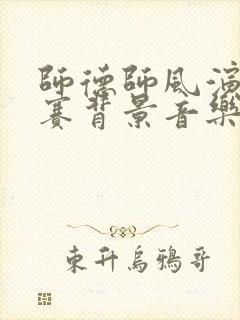 師德師風演
賽背景音樂
東升烏鴉哥